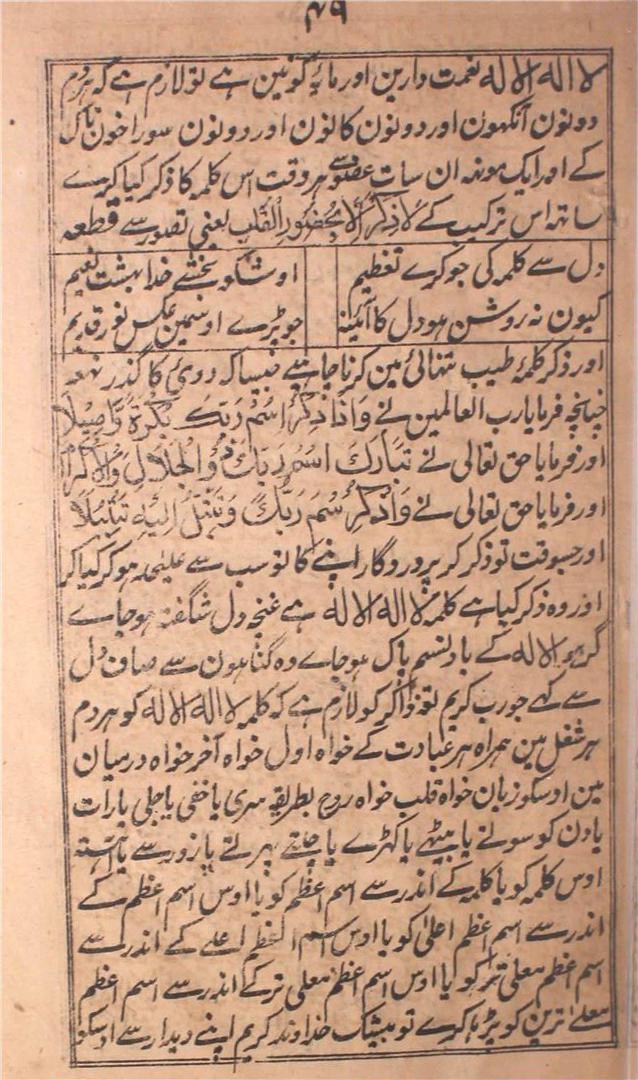 ۴۹
لا اله الا له نعمت دارین اور مایۂ کونین ہے تو لازم ہے کہ ہر دم
دونون آنکھون اور دونون کانون اور دونون سوراخون ناک
کے اور ایک مونہہ ان سات عضو سے ہر وقت اس کلمہ کا ذکر کیا کرے
ساتہ اس ترکیب کے لَا ذِکْرَ اِلَّا بِحُضُورِ الْقَلْبِ یعنی تصور سے قطعہ
دل سے کلمہ کی جو کرے تعظیم اوسکو بخشے خدا بہشت نعیم
کیون نہ روشن ہو دل کا آئینہ جو پڑے اوسمین عکس نور قدیم
اور ذکر کلمۂ طیب تنہائی مین کرنا چاہئے جیسا کہ دوئی کا گذر نہو
چنانچہ فرمایا رب العالمین نے وَاذْکُرِ اسْمَ رَبِّكَ بُكْرَةً وَّاَصِيلًا
اور فرمایا حق تعالی نے تَبَارَكَ اسْمُ رَبِّكَ ذُو الْجَلَالِ وَالْاِكْرَام
اور فرمایا حق تعالی نے وَاذْكُرِ اسْمَ رَبِّكَ وَتَبَتَّلْ اِلَيْهِ تَبْتِيلًا
اور جسوقت تو ذکر کر پروردگار اپنے کا تو سب سے علیحدہ ہو کر کیا کر
اور وہ ذکر کیا ہے کلمہ لا اله الا له ہے غنچۂ دل شگفتہ ہو جاے
گر ہو الا له کے باد نسیم پاک ہو جاے وہ گناہون سے صاف دل
سے کہے جو رب کریم تو ذاکر کو لازم ہے کہ کلمہ لا اله الا له کو ہر دم
ہر شغل مین ہمراہ ہر عبادت کے خواہ اول خواہ آخر خواہ درمیان
مین اوسکو زبان خواہ قلب خواہ روح بطریق سری یا خفی یا جلی یا رات
یا دن کو سوتے یا بیٹھے یا کھڑے یا چلتے پھرتے یا زور سے یا آہستہ
اوس کلمہ کو یا کلمہ کے اندر سے اسم اعظم کو یا اوس اسم اعظم کے
اندر سے اسم اعظم اعلیٰ کو یا اوس اسم اعظم اعلے کے اندر سے
اسم اعظم معلی تر کو یا اوس اسم اعظم معلی تر کے اندر سے اسم اعظم
معلے ترین کو پڑہا کرے تو بیشک خداوند کریم اپنے دیدار سے اوسکو